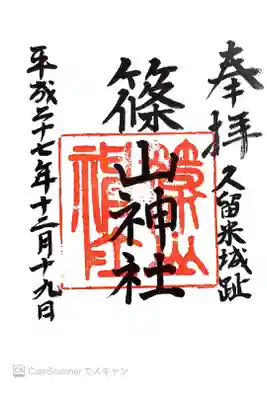 奉拝
久留米城趾
篠山神社
篠山神社
平成二十七年十二月十九日
CamScannerでスキャン